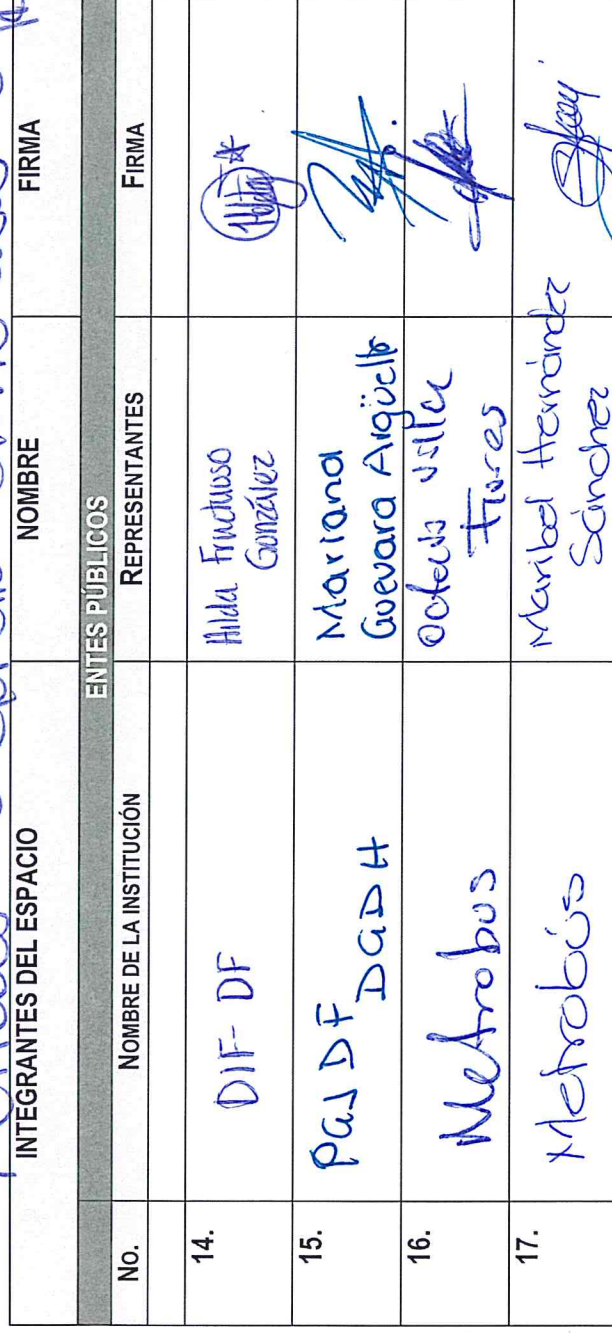 INTEGRANTES DEL ESPACIO NOMBRE FIRMA
ENTES PÚBLICOS
No. NOMBRE DE LA INSTITUCIÓN REPRESENTANTES FIRMA
14. DIF-DF Hilda Fructuoso
González
15. PGJ DF Mariana
DGDH Guevara Argüello
16. Metrobus Octavio Villa
Flores
17. Metrobús Maribel Hernández
Sánchez